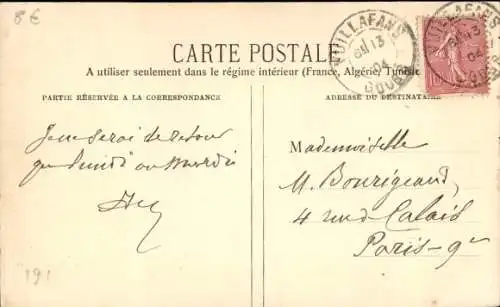 8€
CARTE POSTALE
A utiliser seulement dans le régime intérieur (France, Algérie, Tunisie
PARTIE RÉSERVÉE A LA CORRESPONDANCE
ADRESSE DU DESTINATAIRE
VUILLAFANS
13
04
DOUBS
VUILLAFANS
13
04
Je ne serai de retour
que lundi ou mardi
Mademoiselle
M. Bourigeaud,
4 rue Calais
Paris-9e
191